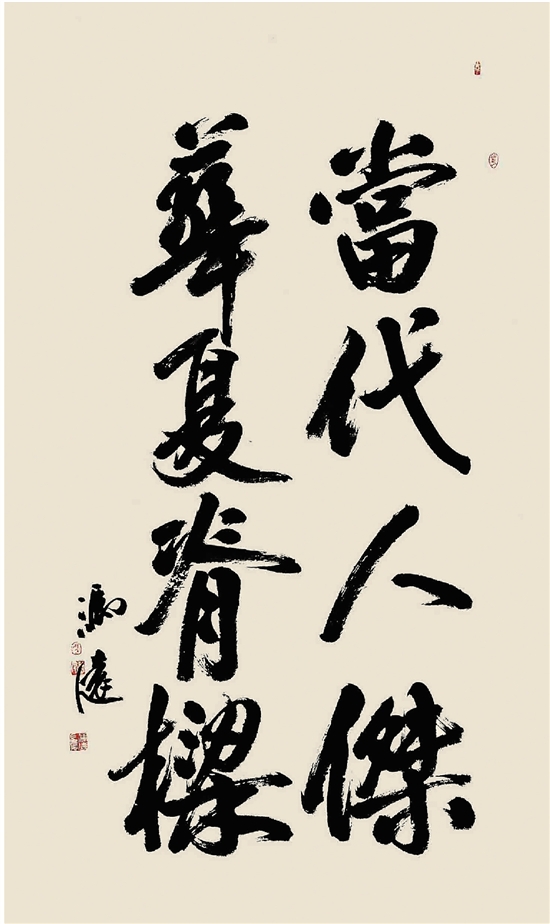 當代人傑
華夏脊樑
馮健